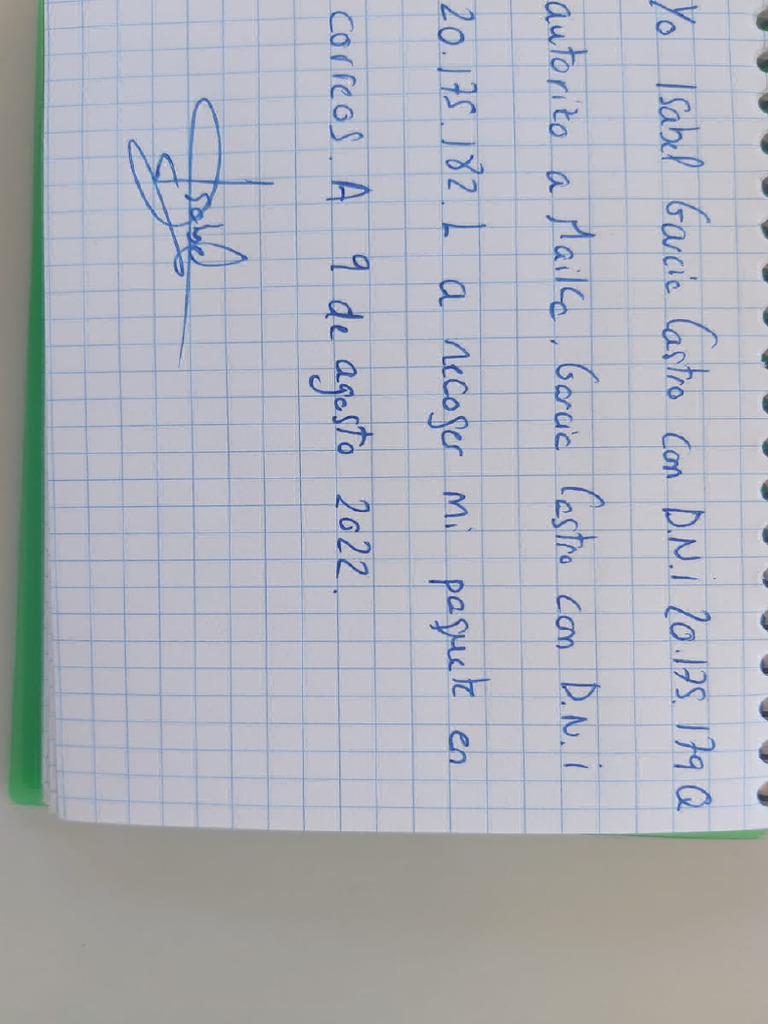 Yo Isabel Garcia Castro con D.N.i 20.175.179Q
autorizo a Maika Garcia Castro con D.N.i
20.175.182.L a recoger mi paquete en
correos. A 9 de agosto 2022.
Isabel